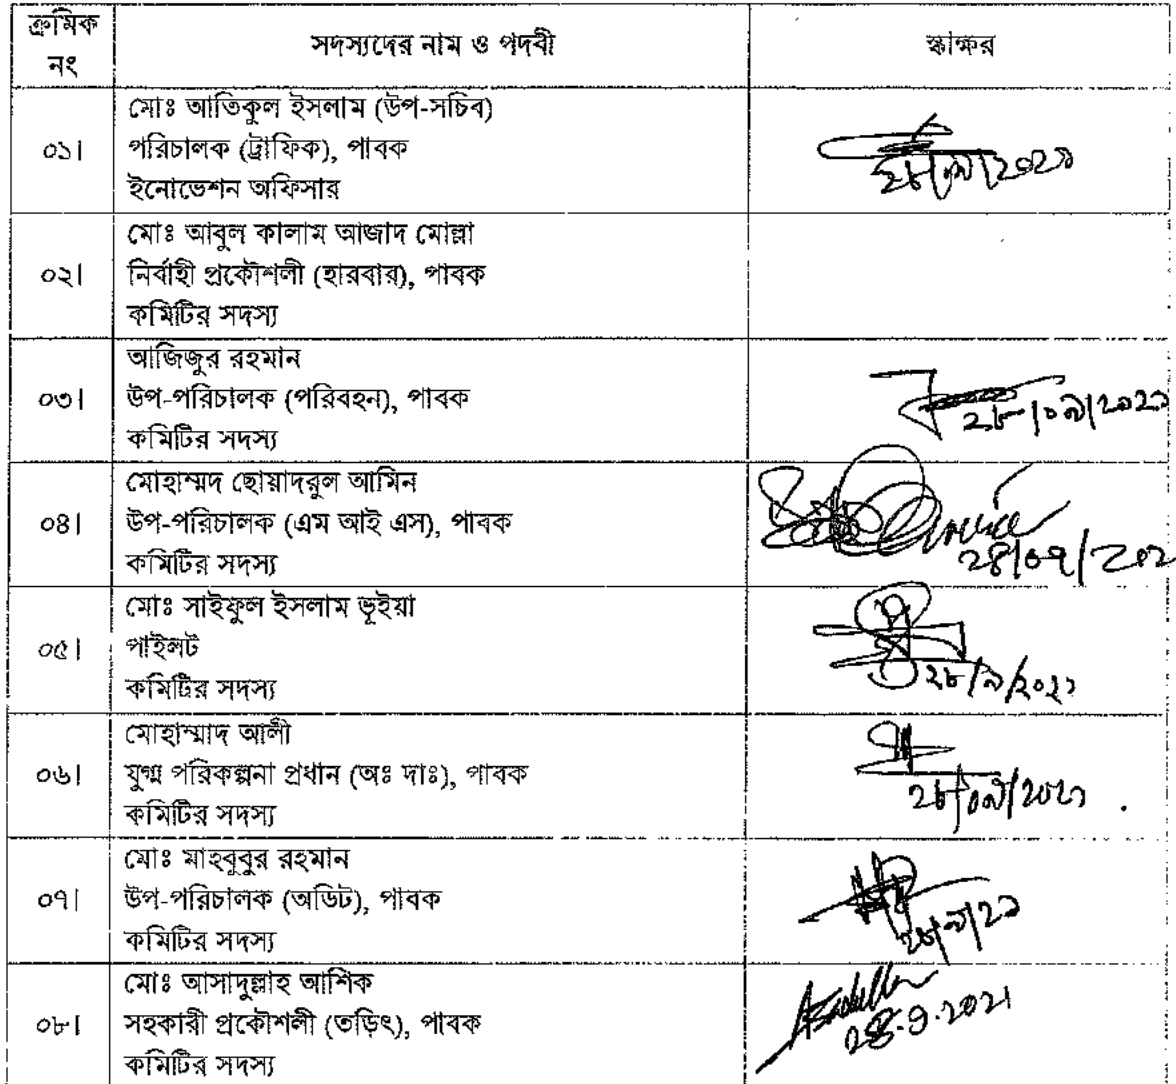 ক্রমিক নং
সদস্যদের নাম ও পদবী
স্বাক্ষর
০১।
মোঃ আতিকুল ইসলাম (উপ-সচিব)
পরিচালক (ট্রাফিক), পাবক
ইনোভেশন অফিসার
২৮/০৯/২০২১
০২।
মোঃ আবুল কালাম আজাদ মোল্লা
নির্বাহী প্রকৌশলী (হারবার), পাবক
কমিটির সদস্য
০৩।
আজিজুর রহমান
উপ-পরিচালক (পরিবহন), পাবক
কমিটির সদস্য
২৮/০৯/২০২১
০৪।
মোহাম্মদ ছোয়াদরুল আমিন
উপ-পরিচালক (এম আই এস), পাবক
কমিটির সদস্য
28/09/202
০৫।
মোঃ সাইফুল ইসলাম ভূইয়া
পাইলট
কমিটির সদস্য
২৮/৯/২০২১
০৬।
মোহাম্মাদ আলী
যুগ্ম পরিকল্পনা প্রধান (অঃ দাঃ), পাবক
কমিটির সদস্য
২৮/০৯/২০২১
০৭।
মোঃ মাহবুবুর রহমান
উপ-পরিচালক (অডিট), পাবক
কমিটির সদস্য
২৮/৯/২১
০৮।
মোঃ আসাদুল্লাহ আশিক
সহকারী প্রকৌশলী (তড়িৎ), পাবক
কমিটির সদস্য
28.9.2021